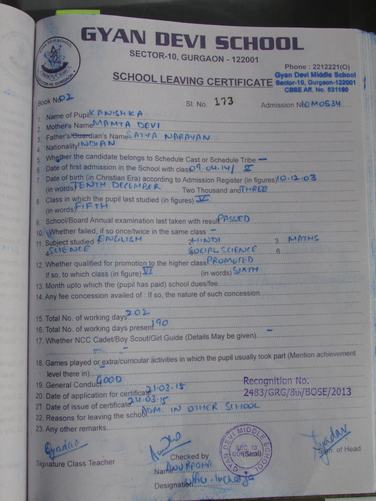 GYAN DEVI SCHOOL
SECTOR-10, GURGAON - 122001
Phone : 2212221(O)
SCHOOL LEAVING CERTIFICATE
Gyan Devi Middle School
Sector-10, Gurgaon-122001
CBSE Aff. No. 531190
Book No. 02
St. No. 173
Admission No. M0534
1 Name of Pupil KANISHKA
2 Mother's Name MAMTA DEVI
3 Father's/Guardian's Name SATYA NARAYAN
4 Nationality INDIAN
5 Whether the candidate belongs to Schedule Cast or Schedule Tribe –
6 Date of first admission in the School with class 09.04.14/ V
7 Date of birth (in Christian Era) according to Admission Register (in figures) 10.12.03
(in words) TENTH DECEMBER Two Thousand and THREE
8 Class in which the pupil last studied (in figures) V
(in words) FIFTH
9 School/Board Annual examination last taken with result PASSED
10 Whether failed, if so once/twice in the same class –
11 Subject studied ENGLISH HINDI 3 MATHS
SCIENCE SOCIAL SCIENCE 6
12 Whether qualified for promotion to the higher class PROMOTED
If so, to which class (in figure) VI (in words) SIXTH
13 Month upto which the (pupil has paid) school dues/fee
14 Any fee concession availed of : If so, the nature of such concession
15 Total No. of working days 202
16 Total No. of working days present 190
17 Whether NCC Cadet/Boy Scout/Girl Guide (Details May be given) –
18 Games played or extra/curricular activities in which the pupil usually took part (Mention achievement
level there in) –
19 General Conduct GOOD
20 Date of application for certificate 21.03.15
21 Date of issue of certificate 24.03.15
22 Reasons for leaving the school ADM. IN OTHER SCHOOL
23 Any other remarks
Recognition No.
2483/GRG/8th/BOSE/2013
GYAN DEVI MIDDLE SCHOOL
(Seal)
Signature Class Teacher
Checked by
Name
Designation
Sign. of Head